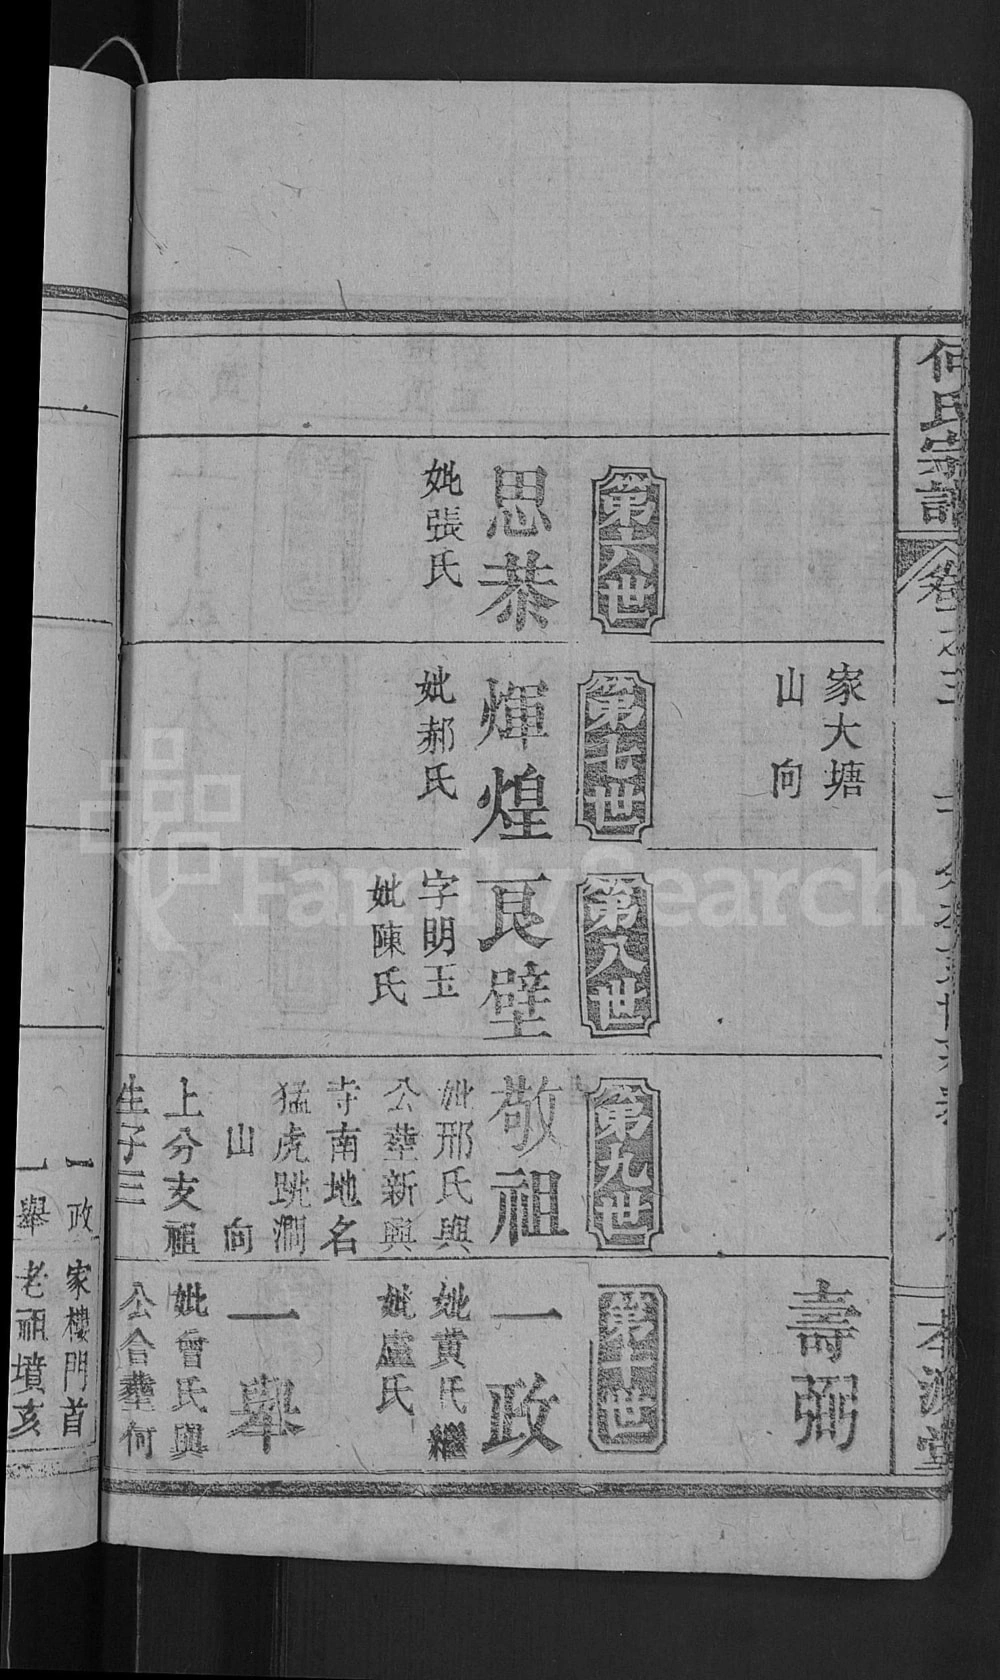 何氏宗譜
卷之三
本源堂
家大塘
山向
壽弼
第六世
思恭
妣張氏
第七世
煇煌
妣郝氏
第八世
艮壁
字明玉
妣陳氏
第九世
敬祖
妣邢氏與
公葬新興
寺南地名
猛虎跳澗
山向
上分支祖
生子三
第十世
一政
妣黄氏繼
妣盧氏
一舉
妣曾氏與
公合葬何
一政
一舉
家樓門首
老祖墳亥
FamilySearch